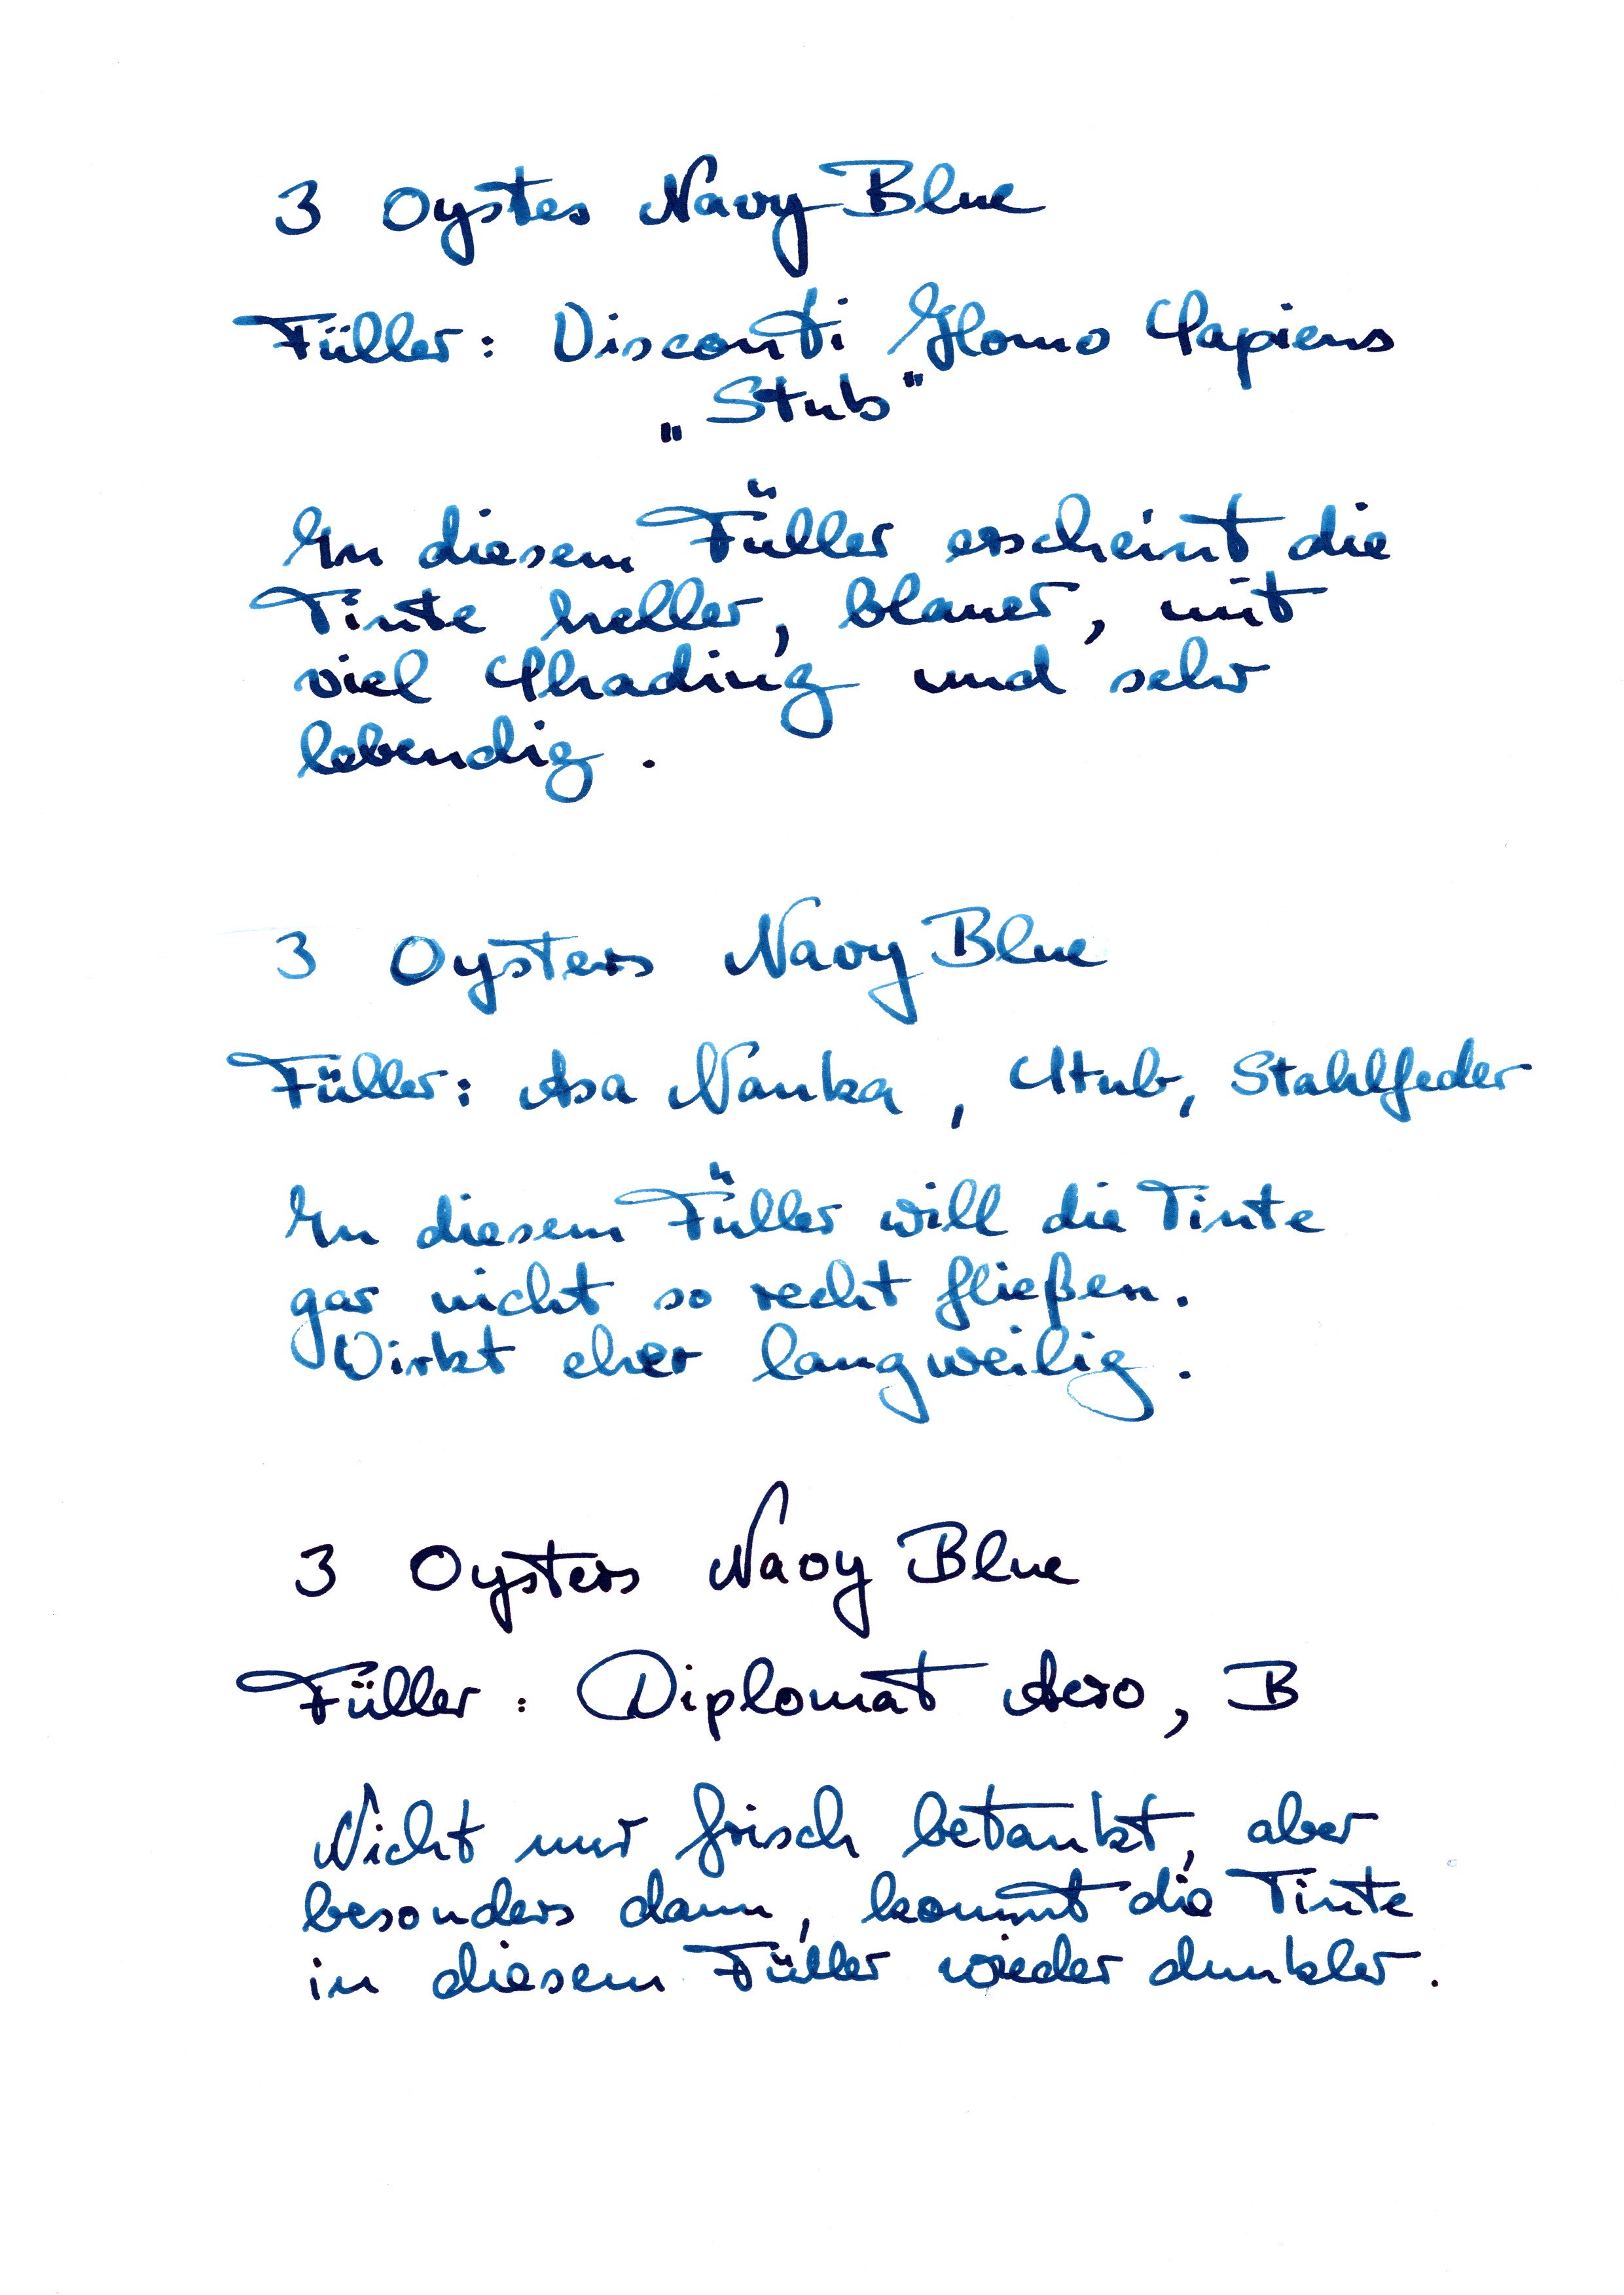 3 Oystes Navy Blue
Füller: Visconti Homo Sapiens
„Stub"
In diesem Füller erscheint die
Tinte heller, blauer, mit
viel Shading und sehr
lebendig.
3 Oysters Navy Blue
Füller: Asa Nauka, Stub, Stahlfeder
In diesem Füller will die Tinte
gar nicht so recht fließen.
Wirkt eher langweilig.
3 Oysters Navy Blue
Füller: Diplomat Aero, B
Nicht nur frisch betankt, aber
besonders dann, kommt die Tinte
in diesem Füller wieder dunkler.